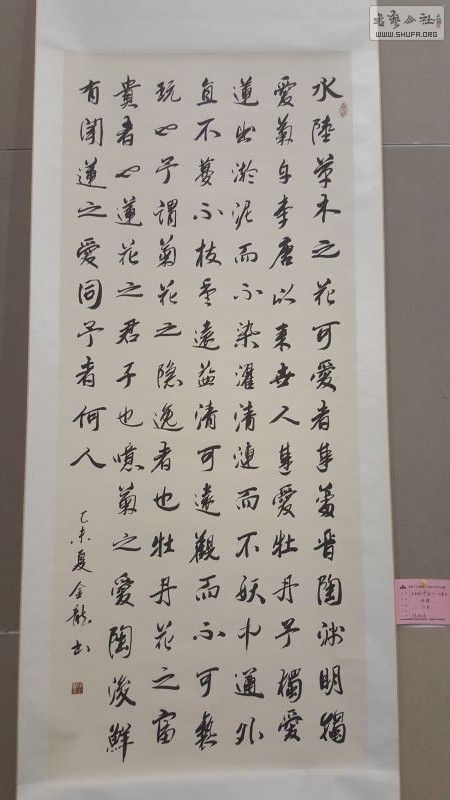 水陸草木之花可愛者甚蕃晋陶渊明獨
愛菊自李唐以来世人甚愛牡丹予獨愛
蓮出淤泥而不染濯清漣而不妖中通外
直不蔓不枝香遠益清可遠觀而不可褻
玩也予謂菊花之隐逸者也牡丹花之富
貴者也蓮花之君子也噫菊之愛陶後鮮
有闻蓮之愛同予者何人
乙未夏金龍书
書藝公社
WWW.SHUFA.ORG